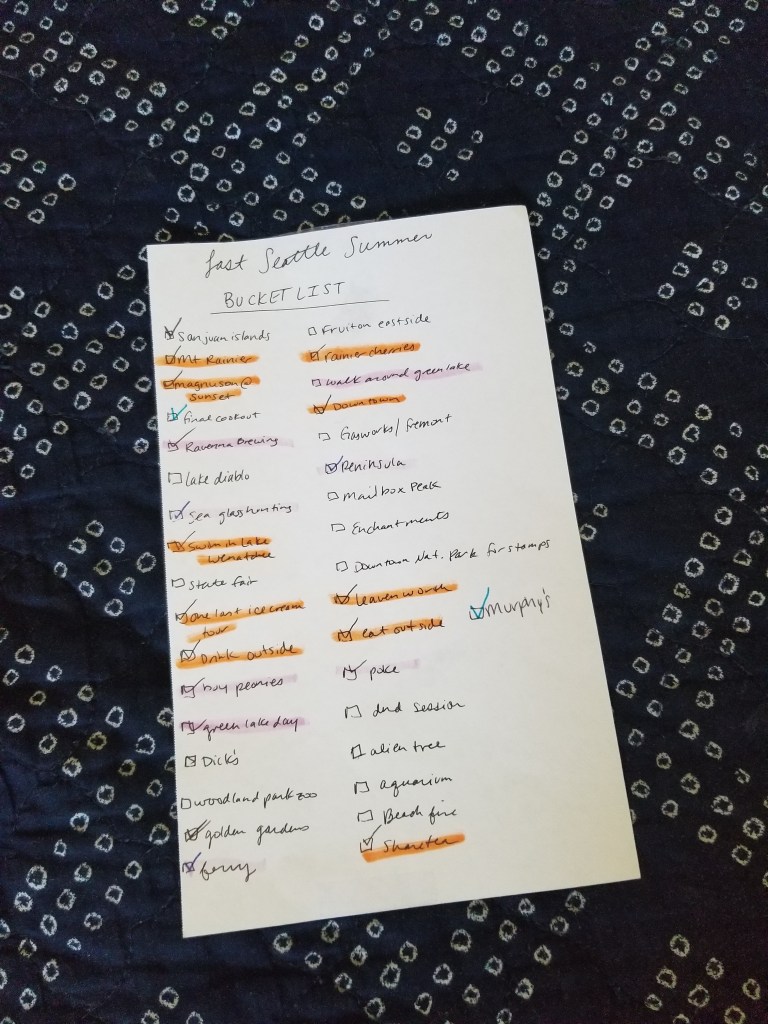 Last Seattle Summer
BUCKET LIST
San juan islands
Mt Rainier
magnuson @
sunset
final cookout
Ravenna Brewing
lake diablo
sea glass hunting
Swim in Lake
Wenatchee
state fair
one last ice cream
tour
Drink outside
buy peonies
green lake day
Dick's
woodland park zoo
golden gardens
ferry
Fruit on eastside
rainier cherries
walk around green lake
Downtown
Gasworks / fremont
Peninsula
Mailbox Peak
Enchantments
Downtown Nat. Park for stamps
leavenworth
Murphy's
eat outside
poke
dnd session
alien tree
aquarium
Beach fire
Sharetea